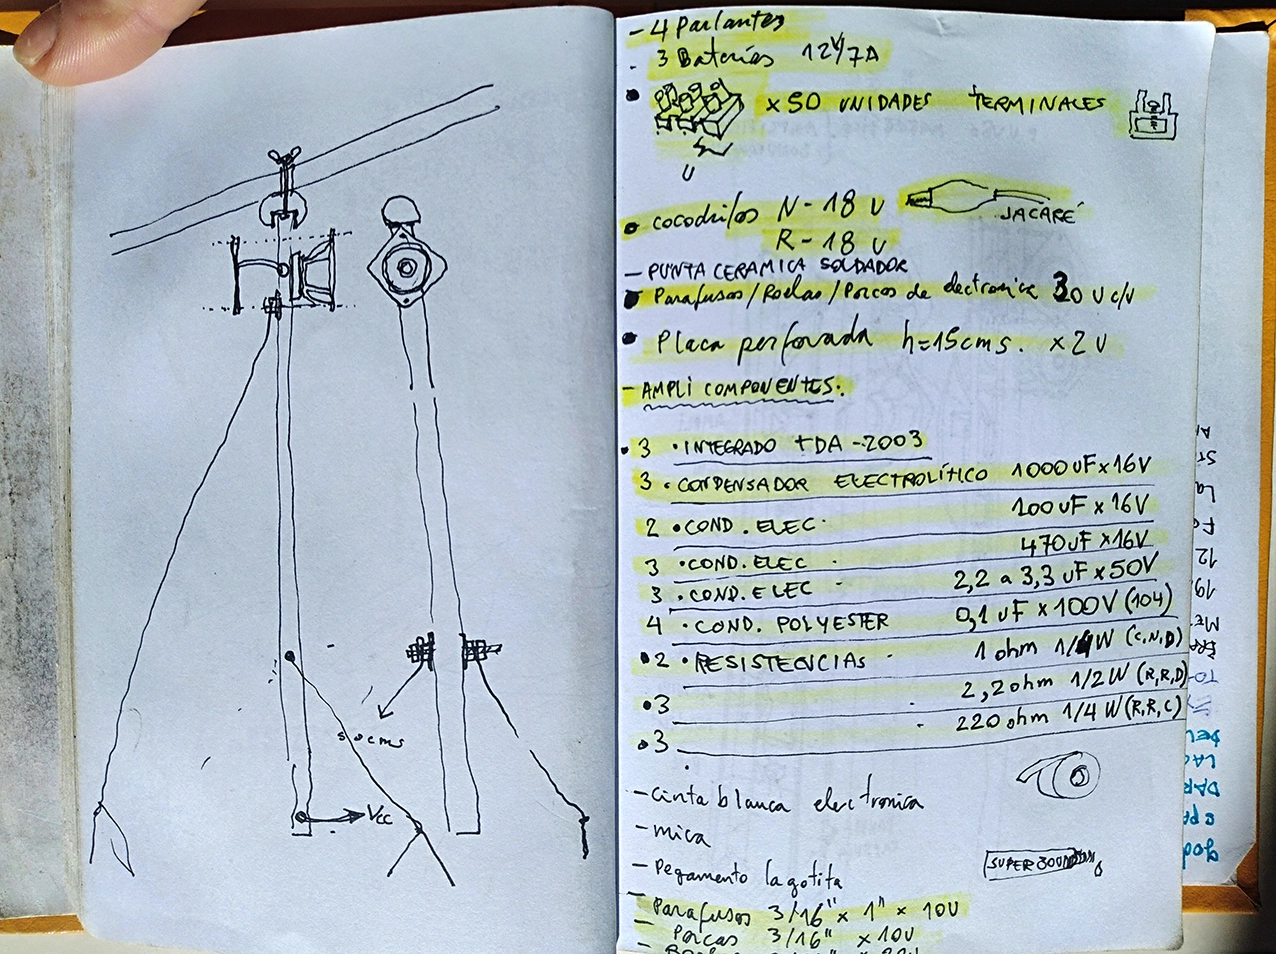 50cms
Vcc
- 4 Parlantes
- 3 Baterias 12V/7A
x 50 UNIDADES TERMINALES
U
cocodrilos N - 18 U
JACARÉ
R - 18 U
- PUNTA CERAMICA SOLDADOR
Parafusos / Roelas / Porcos de electronica 30 U c/u
Placa perforada h=15cms. x 2 U
- AMPLI COMPONENTES.
3 · INTEGRADO TDA-2003
3 · CONDENSADOR ELECTROLÍTICO 1000uF x 16V
2 · COND. ELEC. 100uF x 16V
3 · COND. ELEC. 470uF x 16V
3 · COND. ELEC 2,2 a 3,3uF x 50V
4 · COND. POLYESTER 0,1uF x 100V (104)
2 · RESISTENCIAS 1 ohm 1/4W (C,N,D)
3 2,2ohm 1/2W (R,R,D)
3 220 ohm 1/4W (R,R,C)
- cinta blanca electronica
- mica
- Pegamento la gotita
SUPER
- Parafusos 3/16" x 1" x 10U
- Porcas 3/16" x 10U